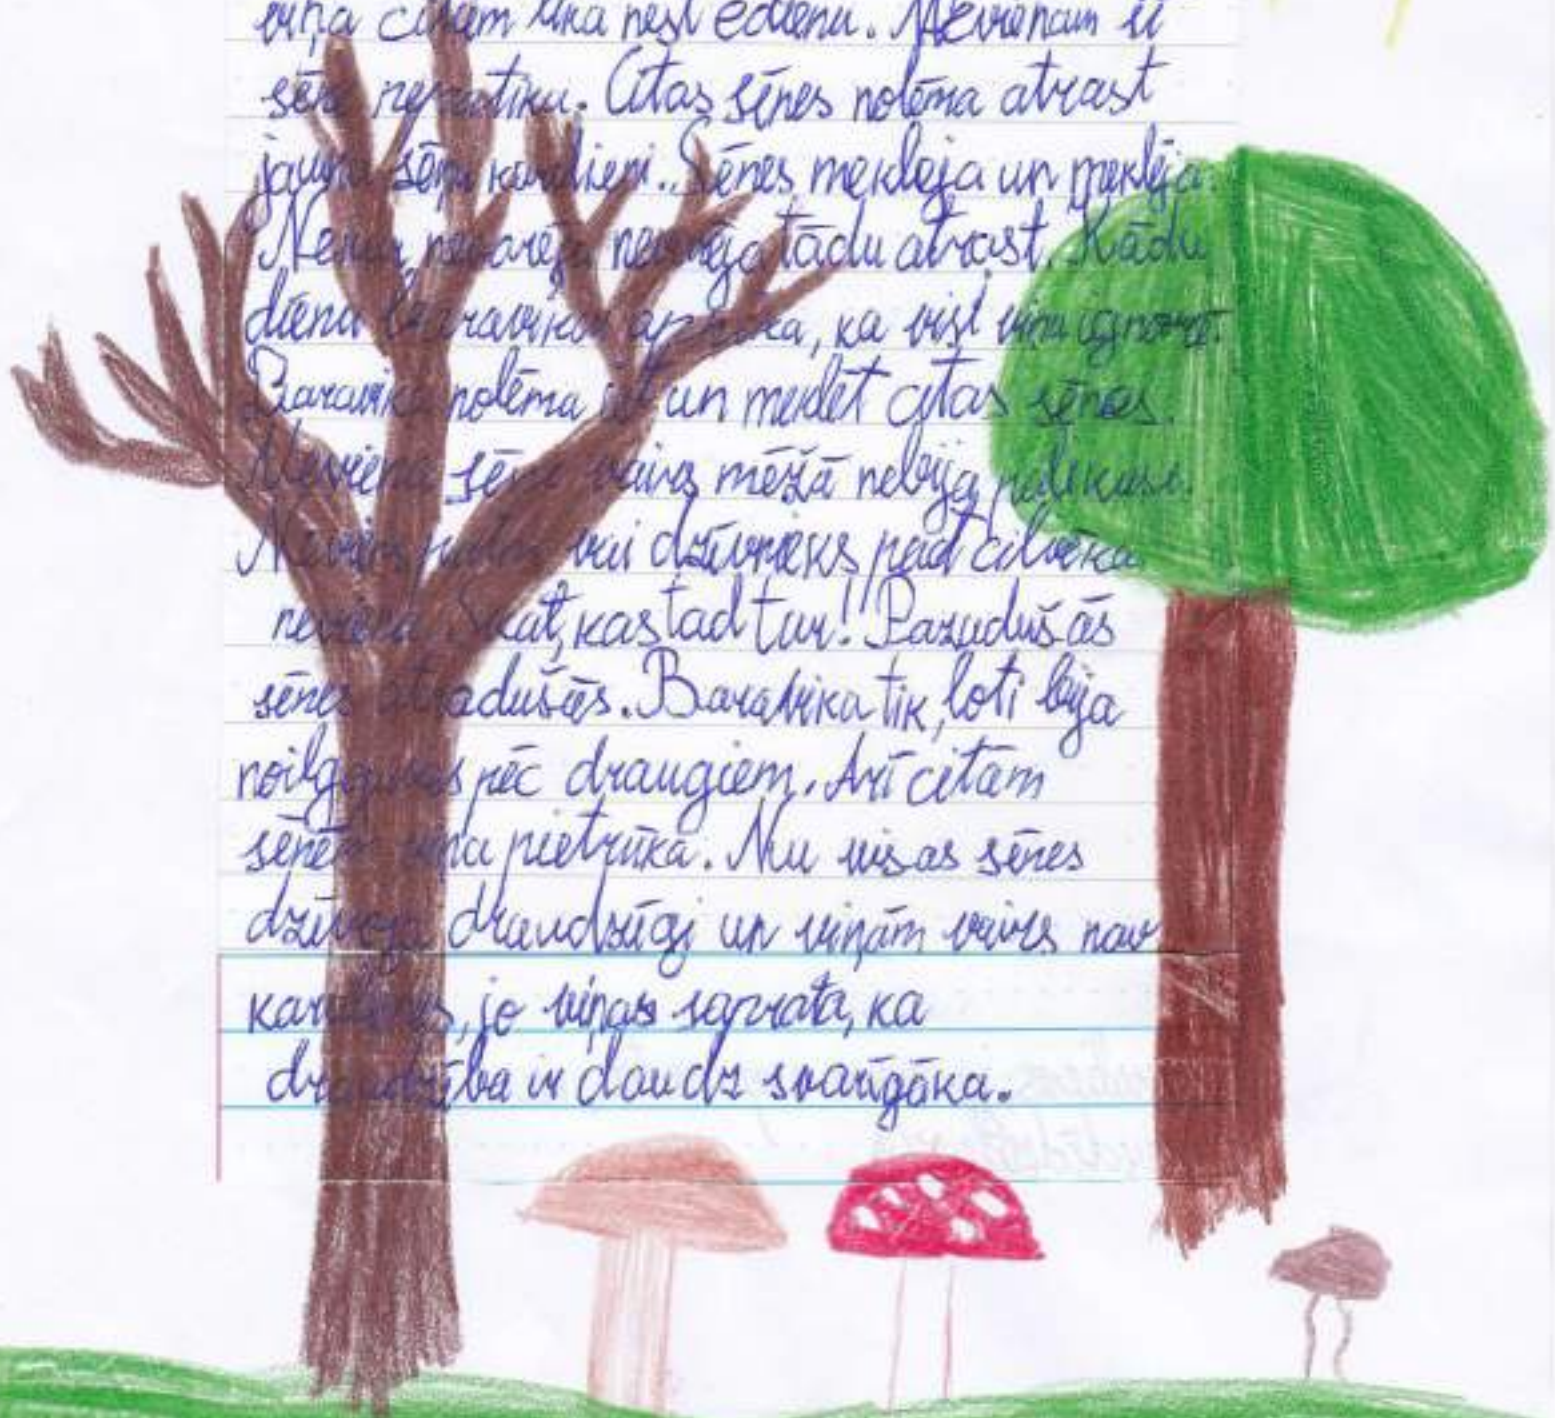 viņa citām lika nest ēdienu. Nevienam šī
sēne nepatika. Citas sēnes nolēma atrast
jaunu sēņu karalieni. Sēnes meklēja un meklēja.
nevarēja nevarēja tādu atrast. Kādu
dienu baravika aprata, ka visi viņu ignorē.
Baravika nolēma iet un meklēt citas sēnes.
Neviena sēne vairs mežā nebija palikusi.
vai dzīvnieks pat cilvēka
nevienā. Skat, kas tad tur! Pazudušās
sēnes atradušās. Baravika tik ļoti bija
noilgojusies pēc draugiem. Arī citām
sēnēm viņa pietrūka. Nu visas sēnes
dzīvoja draudzīgi un viņām vairs nav
karalienes, jo viņas saprata, ka
draudzība ir daudz svarīgāka.